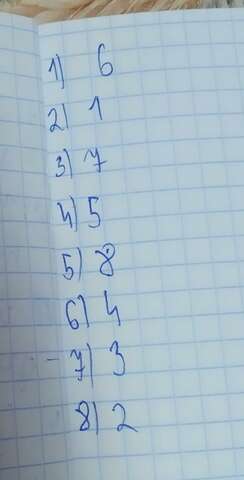 1) 6
2) 1
3) 7
4) 5
5) 8
6) 4
7) 3
8) 2